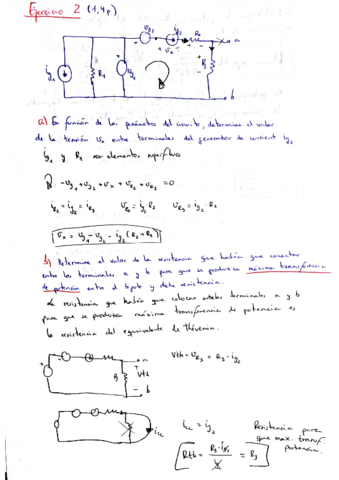 Ejercicio 2 (1,4p)
a) En función de los parámetros del circuito, determine el valor
de la tensión Vx entre terminales del generador de corriente ig2
ig1 y R1 son elementos superfluos
-Vg1 + Vg2 + Vx + VR2 + VR3 = 0
iR2 = ig2 = iR3 VR2 = ig2·R2 VR3 = ig2·R3
Vx = Vg1 - Vg2 - ig2 (R2 + R3)
b) Determine el valor de la resistencia que habría que conectar
entre los terminales a y b para que se produzca máxima transferencia
de potencia entre el dipolo y dicha resistencia.
La resistencia que habría que colocar entre los terminales a y b
para que se produzca máxima transferencia de potencia es
la resistencia del equivalente de Thévenin.
a
R3
Vth
b
Vth = VR3 = R3·ig2
icc
icc = ig2
Rth = R3·ig2 / ig2 = R3
Resistencia para
que max. transf.
potencia.